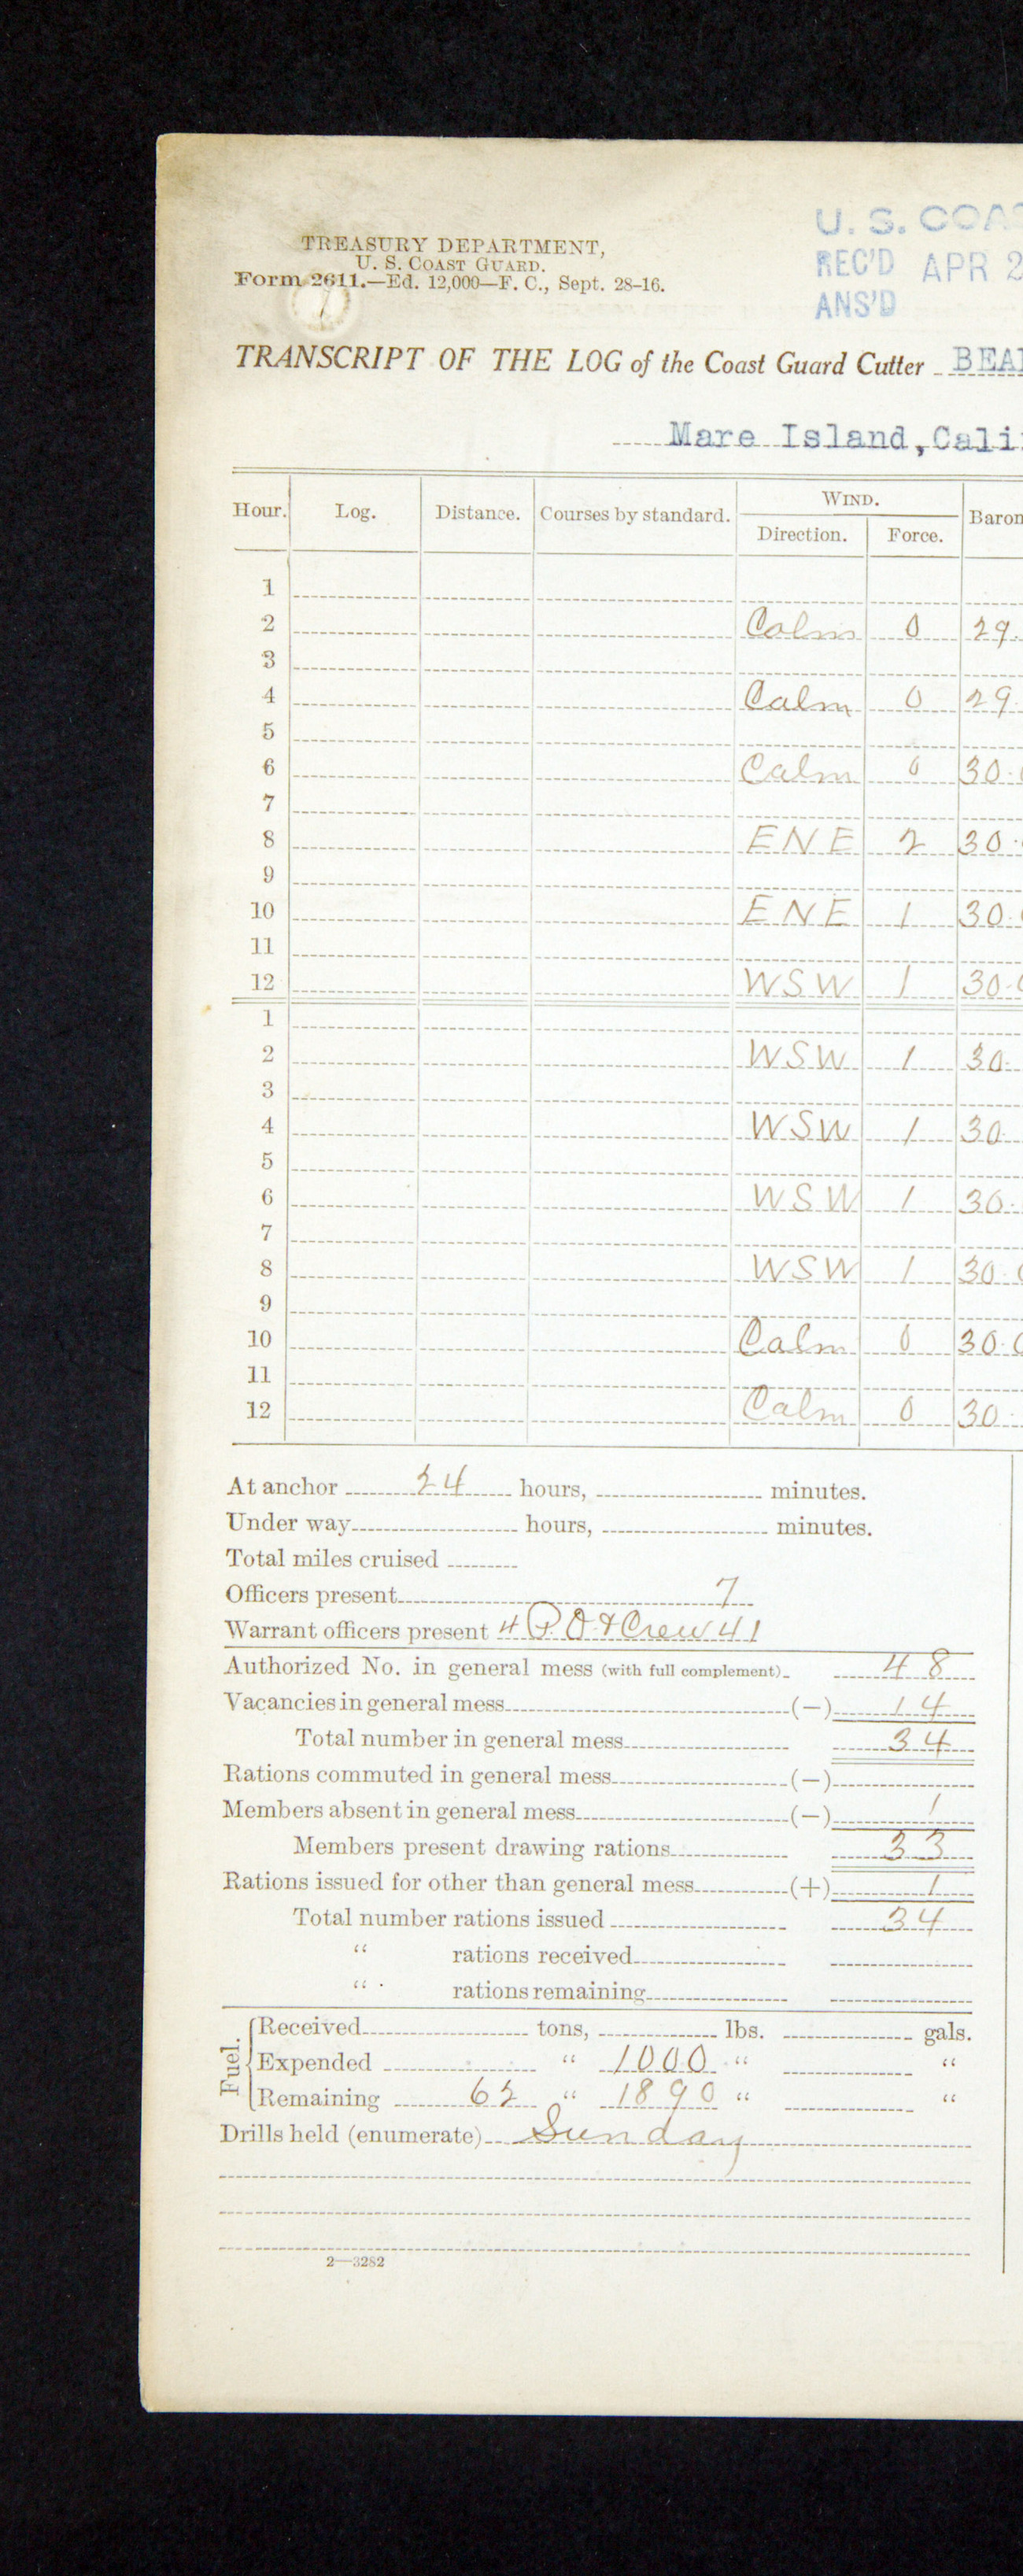 U. S. COAS
REC'D APR 2
ANS'D
TREASURY DEPARTMENT,
U. S. COAST GUARD.
Form 2611.—Ed. 12,000—F. C., Sept. 28-16.
1
TRANSCRIPT OF THE LOG of the Coast Guard Cutter BEA
Mare Island, Cali
Hour. Log. Distance. Courses by standard. WIND. Direction. Force. Baron
1
2 Calm 0 29.
3
4 Calm 0 29.
5
6 Calm 0 30.
7
8 ENE 2 30.
9
10 ENE 1 30.
11
12 WSW 1 30.
1
2 WSW 1 30.
3
4 WSW 1 30.
5
6 WSW 1 30.
7
8 WSW 1 30.
9
10 Calm 0 30.
11
12 Calm 0 30.
At anchor 24 hours, minutes.
Under way hours, minutes.
Total miles cruised
Officers present 7
Warrant officers present 4 P.O. & Crew 41
Authorized No. in general mess (with full complement) 48
Vacancies in general mess (—) 14
Total number in general mess 34
Rations commuted in general mess (—)
Members absent in general mess (—) 1
Members present drawing rations 33
Rations issued for other than general mess (+) 1
Total number rations issued 34
" rations received
" rations remaining
Fuel. Received tons, lbs. gals.
Expended " 1000 " "
Remaining 62 " 1890 " "
Drills held (enumerate) Sunday
2—3282